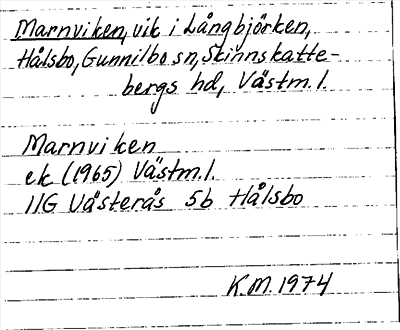 Marnviken, vik i Långbjörken,
Hålsbo, Gunnilbo sn, Skinnskatte-
bergs hd, Västm. l.
Marnviken
ek (1965) Västm. l.
11G Västerås 5b Hålsbo
K.M. 1974